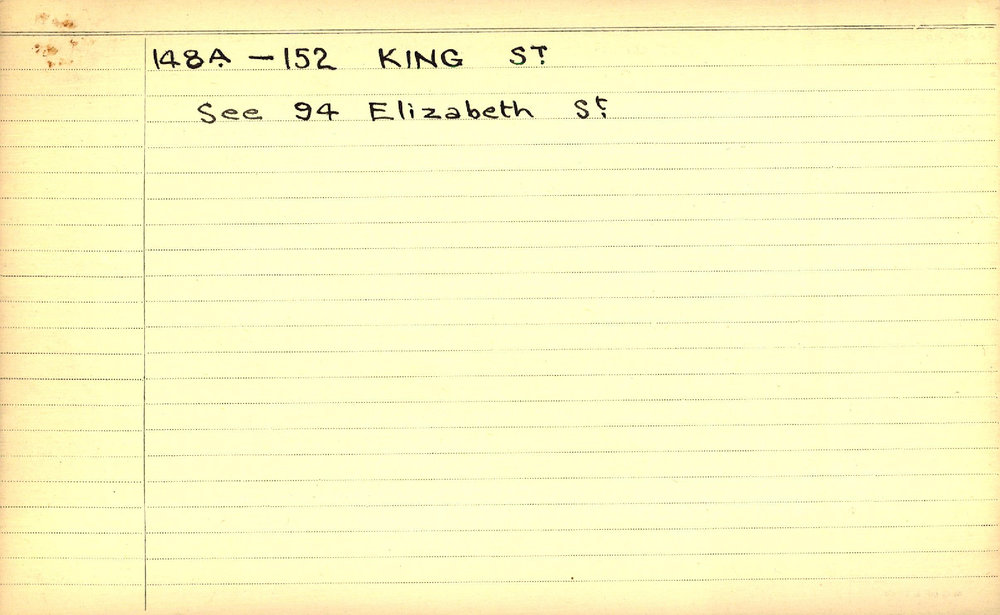 148A - 152 KING ST
See 94 Elizabeth St